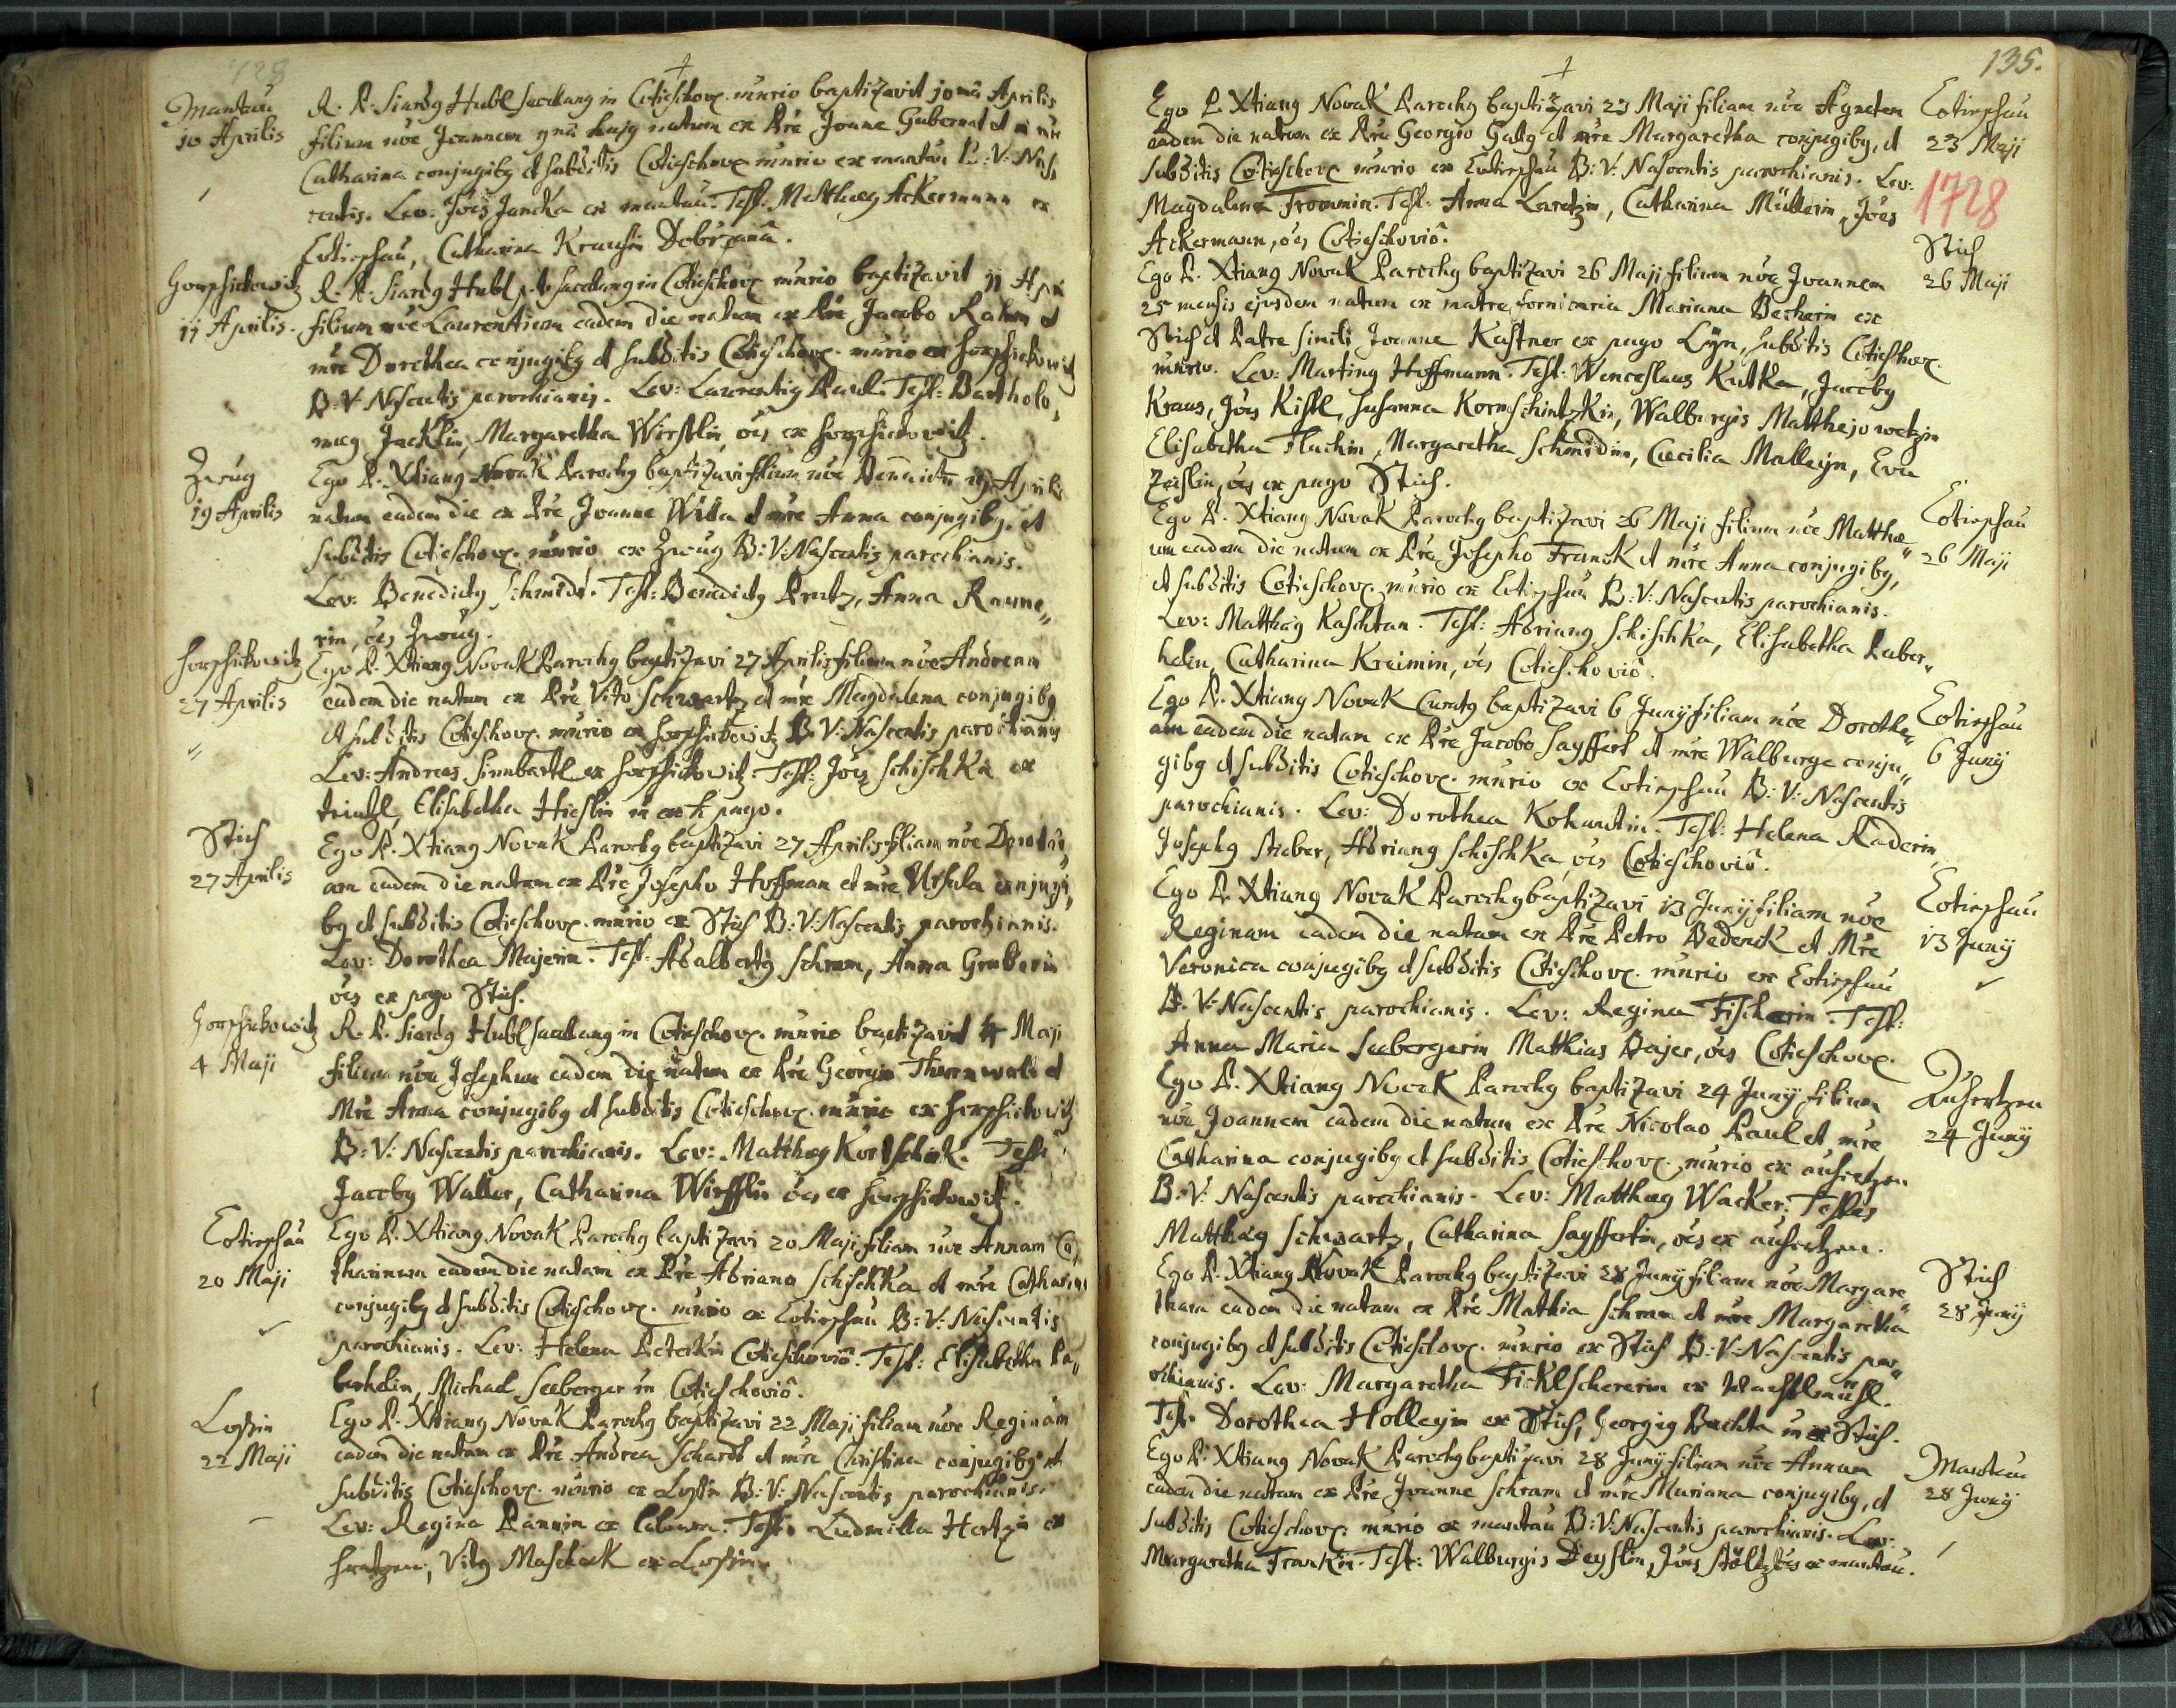 728
Mantau
10 Aprilis
R. P. Siardg Hubl Sacellang in Cotieschov. mrio baptizavit 10ma Aprilis
filium nõe Joannem 9na hujg natum ex Pre Joane Gubernat et mre
Catharina conjugibg et subditis Cotieschov. mrio ex mantau B: V: Nas,
centis. Lev: Jões Jancka ex mantau. Test: Matthaeg Ackermann ex
Cotieschau, Catharina Krausin Dobrzana.
Horschikowitz
11 Aprilis.
R. P. Siardg Hubl p.t. Sacellang in Cotieschov. mrio baptizavit 11 Apri
filium nõe Laurentium eadem die natum ex Pre Jacobo Rahm et
mre Dorothea conjugibg et subditis Cotieschov. mrio ex Horschikowitz
B: V: Nascentis parochianis. Lev: Laurentig Paul. Test: Bartholo,
maeg Jacklin, Margaretha Wirstlin, oes ex Horschikowitz.
Zwug
19 Aprilis
Ego P. Xtiang Novak Parochg baptizavi filium nõe 19 Aprilis
natum eadem die ex Pre Joanne Wida et mre Anna conjugibg, et
subditis Cotieschov. mrio ex Zwug B: V: Nascentis parochianis.
Lev: Benedictg Schmidt. Test: Benedictg Pratz, Anna Raune,,
rin, oes Zwug.
Horschikowitz
27 Aprilis
Ego P. Xtiang Novak Parochg baptizavi 27 Aprilis filium nõe Andream
eadem die natum ex Pre Vito Schwartz et mre Magdalena conjugibg
et subditis Cotieschov. mrio ex Horschikowitz B: V: Nascentis parochianis
Lev: Andreas Simbartl ex Horschikowitz. Test: Jões Schischka ex
Elisabetha Hieslin pago.
Stich
27 Aprilis
Ego P. Xtiang Novak Parochg baptizavi 27 Aprilis filiam nõe Dorothe,
am eadem die natam ex Pre Josepho Hoffman et mre Ursula conjugi,
bg et subditis Cotieschov. mrio ex Stich B: V: Nascentis parochianis.
Lev: Dorothea Majerin. Test: Adalbertg Schram, Anna Gruberin
oes ex pago Stich.
Horschikowitz
4 Maji
R. P. Siardg Hubl Sacellang in Cotieschov. mrio baptizavit 4 Maji
filium nõe Josephum eadem die natum ex Pre Georgio Thurnwald et
Mre Anna conjugibg et subditis Cotieschov. mrio ex Horschikowitz
B: V: Nascentis parochianis. Lev: Matthaeg Kortschik. Test:
Jacobg Walter, Catharina Wirfflin oes ex Horschikowitz.
Cotieschau
20 Maji
Ego P. Xtiang Novak Parochg baptizavi 20 Maji filiam nõe Annam Ca,
tharinam eadem die natam ex Pre Adriano Schischka et mre Catharina
conjugibg et subditis Cotieschov. mrio ex Cotieschau B: V: Nascentis
parochianis. Lev: Helena Peterkin Cotieschoviô. Test: Elisabetha Ra,,
berhelin, Michael Seeberger in Cotieschoviô.
Lossin
22 Maji
Ego P. Xtiang Novak Parochg baptizavi 22 Maji filiam nõe Reginam
eadem die natam ex Pre Andrea Schardt et mre Christina conjugibg et
subditis Cotieschov. mrio ex Lossin B: V: Nascentis parochianis.
Lev: Regina Pannin ex Test: Ludmilla Hertzin ex
Vitg Maschek ex Lossin.
135.
Ego P. Xtiang Novak Parochg baptizavi 23 Maji filiam nõe Agnetem
eadem die natam ex Pre Georgio Galtg et mre Margaretha conjugibg, et
subditis Cotieschov. mrio ex Cotieschau B: V: Nascentis parochianis. Lev:
Magdalena Frommin. Test: Anna Laretzin, Catharina Müllerin, Jões
Ackermann, oes Cotieschoviô.
Cotieschau
23 Maji
1728
Stich
26 Maji
Ego P. Xtiang Novak Parochg baptizavi 26 Maji filium nõe Joannem
25 mensis ejusdem natum ex matre fornicaria Mariana Becherin ex
Stich et Patre simili Joanne Kastner ex pago Lyn, subditis Cotieschov.
mrio. Lev: Marting Hoffmann. Test: Wenceslaus Kutka, Jacobg
Kraus, Jões Kistl, Susanna Kornschintzkin, Walburgis Matthejowetzin
Elisabetha Flachin, Margaretha Schmidin, Caecilia Malleyin, Eva
Zeislin, oes ex pago Stich.
Cotieschau
26 Maji
Ego P. Xtiang Novak Parochg baptizavi 26 Maji filium nõe Matthae,,
um eadem die natum ex Pre Josepho Franck et mre Anna conjugibg,
et subditis Cotieschov. mrio ex Cotieschau B: V: Nascentis parochianis.
Lev: Matthaeg Kaschtan. Test: Adriang Schischka, Elisabetha Raber,,
helin, Catharina Kreimin, oes Cotieschoviô.
Cotieschau
6 Junij
Ego P. Xtiang Novak Curatg baptizavi 6 Junij filiam nõe Dorothe,,
am eadem die natam ex Pre Jacobo Sayffert et mre Walburga conju,,
gibg et subditis Cotieschov. mrio ex Cotieschau B: V: Nascentis
parochianis. Lev: Dorothea Kohautin. Test: Helena Raderin,
Josephg Stieber, Adriang Schischka, oes Cotieschoviô.
Cotieschau
13 Junij
Ego P. Xtiang Novak Parochg baptizavi 13 Junij filiam nõe
Reginam eadem die natam ex Pre Petro Bederck et Mre
Veronica conjugibg et subditis Cotieschov. mrio ex Cotieschau
B. V: Nascentis parochianis. Lev: Regina Fischerin. Test:
Anna Maria Seebergerin Matthias Bajer, oes Cotieschov.
Auhertzen
24 Junij
Ego P. Xtiang Novak Parochg baptizavi 24 Junij filium
nõe Joannem eadem die natum ex Pre Nicolao Paul et mre
Catharina conjugibg et subditis Cotieschov. mrio ex auhertzen
B: V: Nascentis parochianis. Lev: Matthaeg Wacker. Testes
Matthaeg Schwartz, Catharina Sayffertin, oes ex auhertzen.
Stich
28 Junij
Ego P. Xtiang Novak Parochg baptizavi 28 Junij filiam nõe Margare,,
tham eadem die natam ex Pre Mathia Schram et mre Margaretha
conjugibg et subditis Cotieschov. mrio ex Stich B: V: Nascentis par,,
ochianis. Lev: Margaretha Ficklschererin ex
Test: Dorothea Holleyin ex Stich, Georgig Buchta in ex Stich.
Mantau
28 Junij
Ego P. Xtiang Novak Parochg baptizavi 28 Junij filiam nõe Annam
eadem die natam ex Pre Joanne Schram et mre Mariana conjugibg, et
subditis Cotieschov. mrio ex mantau B: V: Nascentis parochianis. Lev:
Margaretha Frankin. Test: Walburgis Deyslin, Jões Stöltz oes ex mantau.